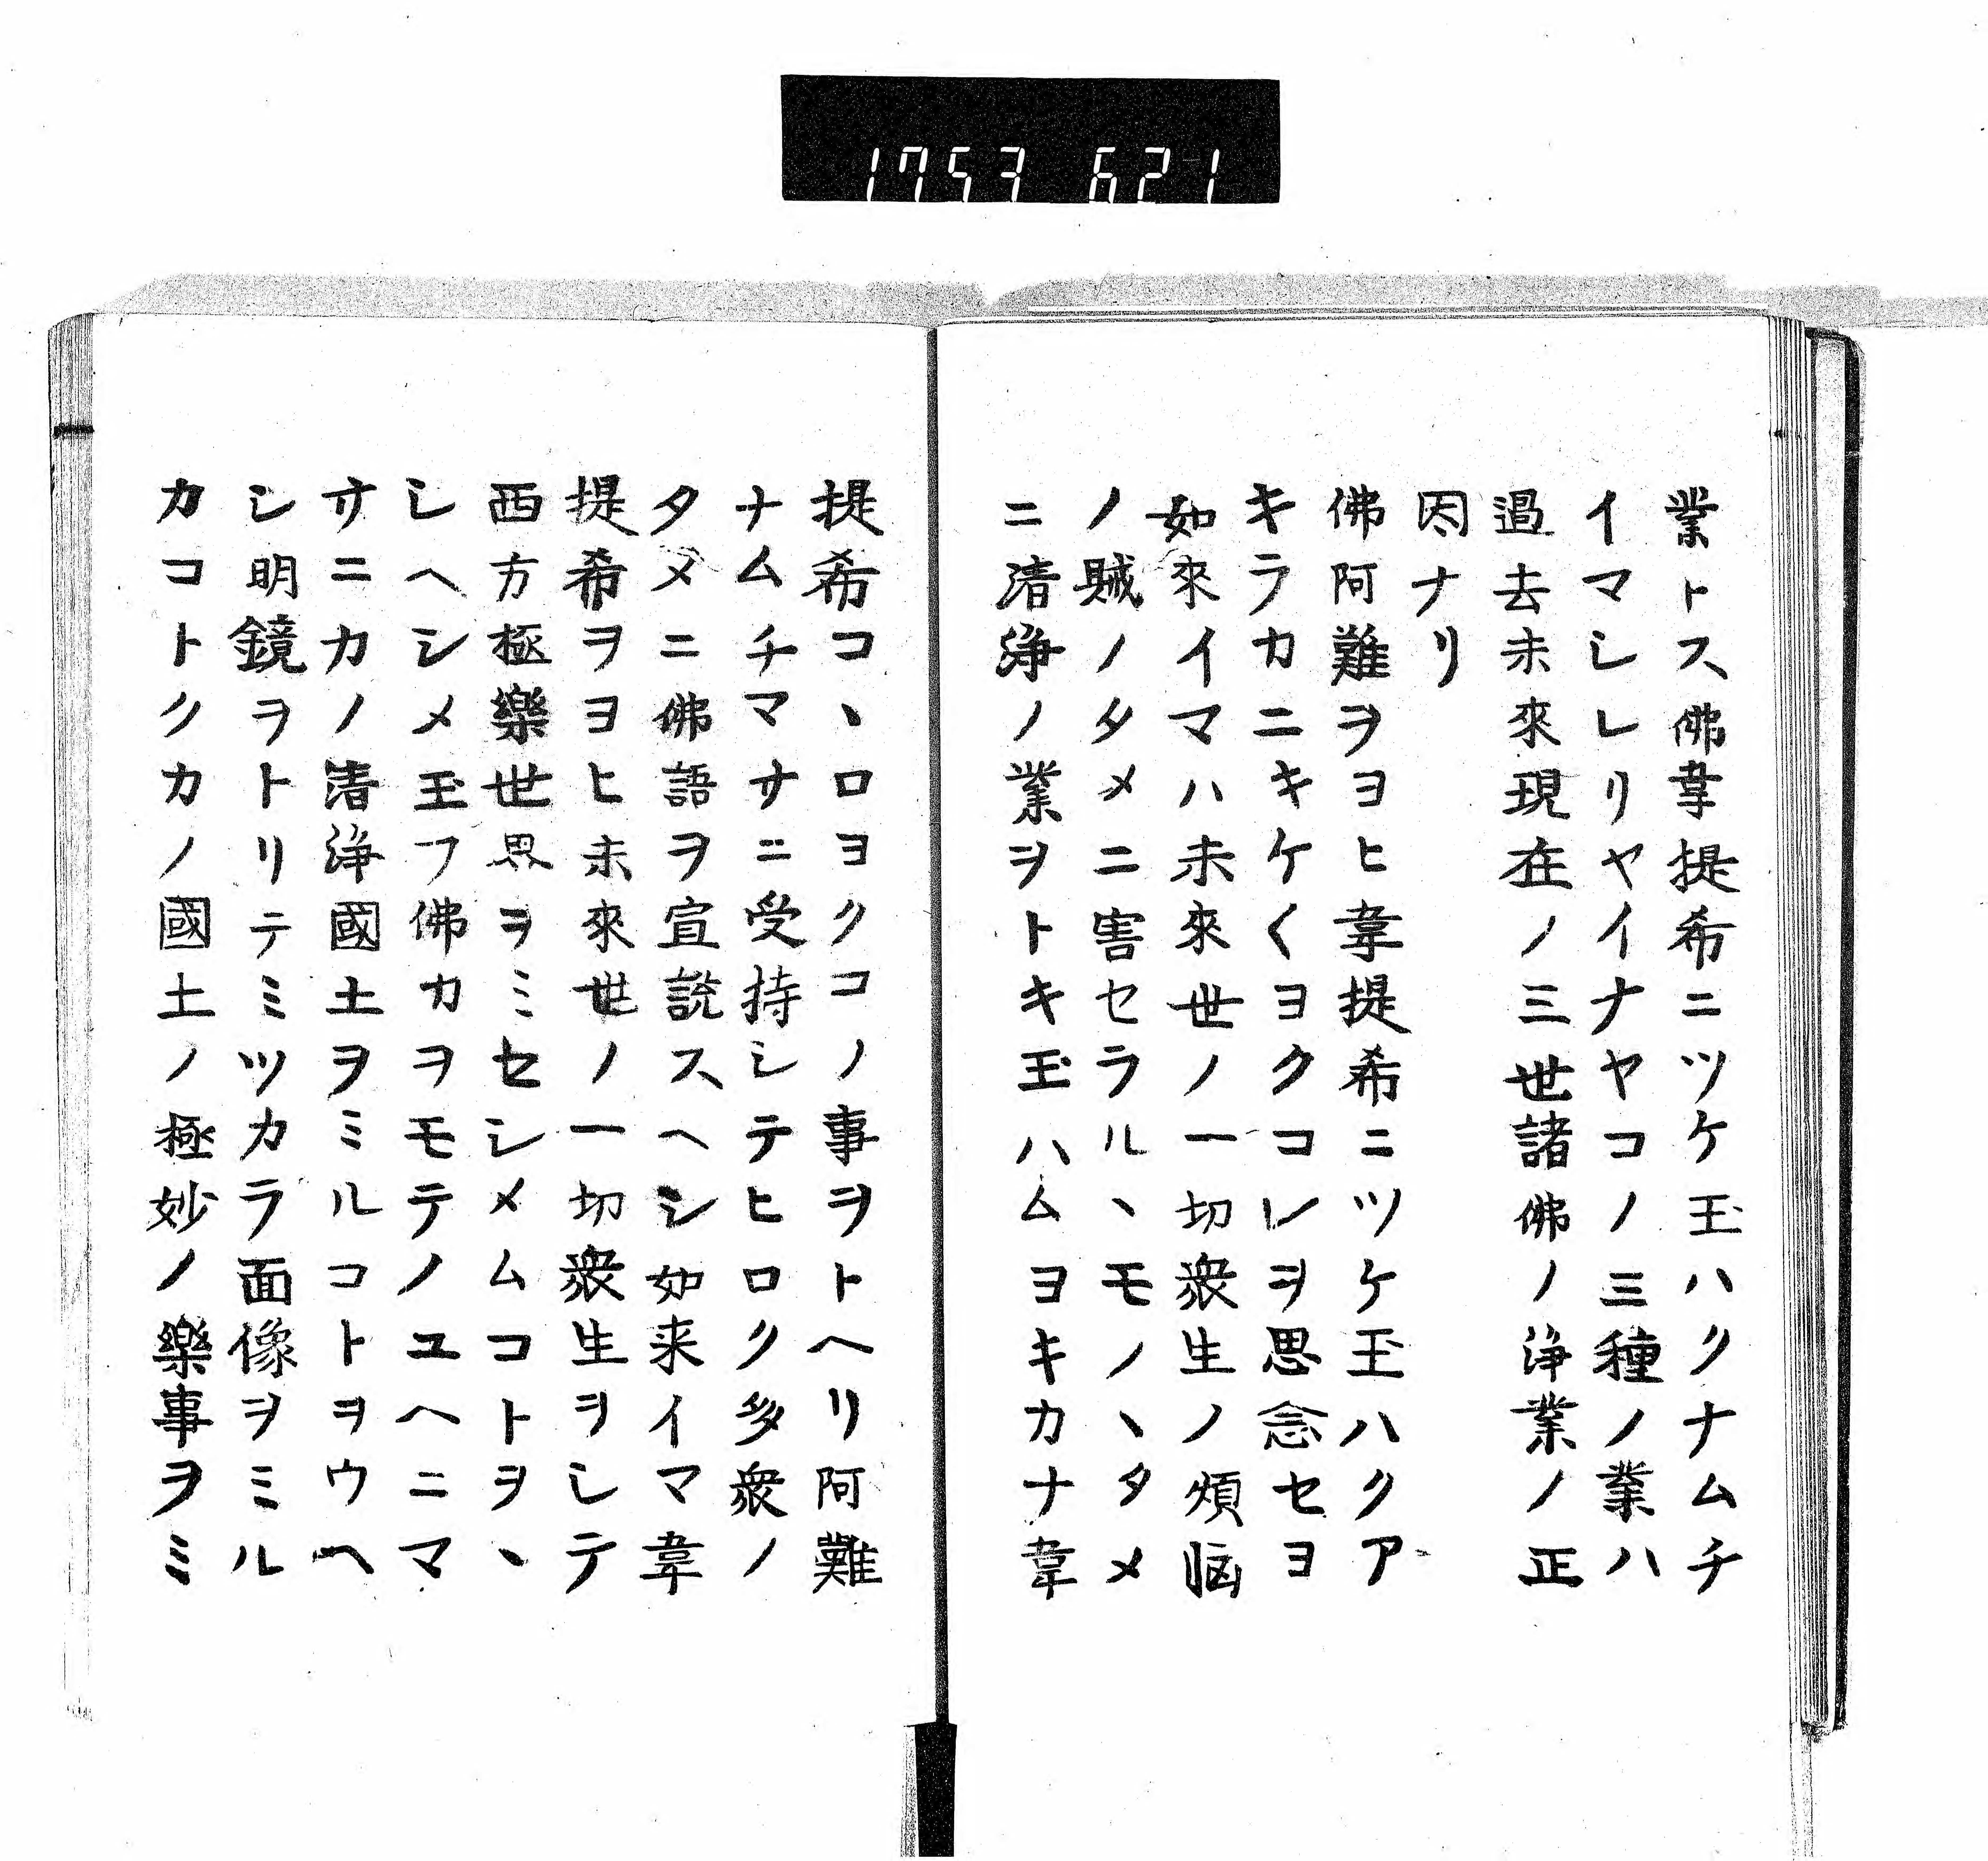 1753 621
業トス佛韋提希ニツケ玉ハクナムチ
イマシレリヤイナヤコノ三種ノ業ハ
過去未來現在ノ三世諸佛ノ淨業ノ正
因ナリ
佛阿難ヲヨヒ韋提希ニツケ玉ハクア
キラカニキケ〱ヨクコレヲ思念セヨ
如來イマハ未來世ノ一切衆生ノ煩惱
ノ賊ノタメニ害セラルヽモノヽタメ
ニ清淨ノ業ヲトキ玉ハムヨキカナ韋
提希コヽロヨクコノ事ヲトヘリ阿難
ナムチマサニ受持シテヒロク多衆ノ
タメニ佛語ヲ宣說スヘシ如来イマ韋
提希ヲヨヒ未來世ノ一切衆生ヲシテ
西方極樂世界ヲミセシメムコトヲヽ
シヘシメ玉フ佛カヲモテノユヘニマ
サニカノ清淨國土ヲミルコトヲウヘ
シ明鏡ヲトリテミツカラ面像ヲミル
カコトクカノ國土ノ極妙ノ樂事ヲミ